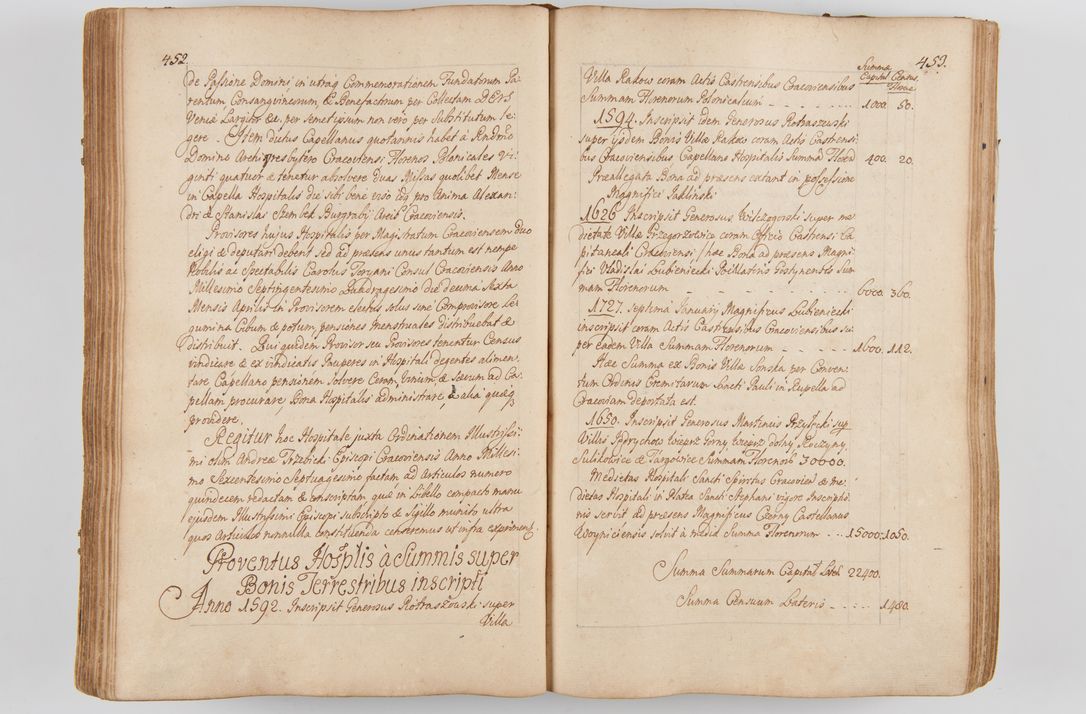 452
de Passione Domini in utraq Commemorationem Fundatorum Pa-
rentum Consanguineorum, & Benefactorum per Collectam DEUS
Veniæ Largitor &a. per semetipsum non vero per Substitutum le-
gere. Item dictus Capellanus quotannis habet à Rndmo
Domino Archipresbytero Cracoviensi Florenos Polonicales Vi-
ginti quatuor & tenetur absolvere duas Missas quolibet Mense
in Capella Hospitalis die sibi bene viso idq pro Anima Alexan-
dri & Stanislai Szembek Burgrabij Arcis Cracoviensis.
Provisores hujus Hospitalis per Magistratum Cracoviensem duo
eligi & deputari debent sed ad præsens unus tantum est nempe
Nobilis ac Spectabilis Carolus Toryani Consul Cracoviensis Anno
Millesimo Septingentesimo Quadragesimo die decima Sexta
Mensis Aprilis in Provisorem electus solus sine Comprovisore Le-
gumina Cibum & potum, pensiones menstruales distribuebat &
distribuit. Qui quidem Provisor seu Provisores tenentur Census
vindicare & ex vindicatis Pauperes in Hospitali degentes alimen-
tare Capellano pensionem solvere Ceram Vinum, & Sævum ad Ca-
pellam procurare, Bona Hospitalis administrare, & alia quæq
providere.
Regitur hoc Hospitale juxta Ordinationem Illustrissi-
mi olim Andreæ Trzebicki Episcopi Cracoviensis Anno Millesi-
mo Sexcentesimo Septuagesimo factam ad Articulos numero
quindecem redactam & conscriptam quæ in libello compacto manu
ejusdem Illustrissimi Episcopi subscripto & Sigillo munito ultra
quos Articulos nonnulla constituenda censeremus ut infra exprimentr
Proventus Hosptlis à Summis super
Bonis Terrestribus inscripti
Anno 1592. Inscripsit Generosus Rotraszowski super
Villa
453.
Summa
Capital Census
Florae
Villa Radow coram Actis Castrensibus Cracoviensibus
Summam Florenorum Polonicalium - - - - 1000. 50.
1594. Inscripsit idem Generosus Rotraszewski
super ijsdem Bonis Villæ Radow coram Actis Castrensi-
bus Cracoviensibus Capellano Hospitalis Summã 400. 20.
Præallegata Bona ad præsens extant in possessione
Magnifici Jakliński
1626 Inscripsit Generosus Wilczogorski super me-
dietate Villæ Grzegorzowice coram Officio Castrensi Ca-
pitaneali Cracoviensi / hæc Bona ad præsens Magni-
fici Vladislai Lubieniecki Sum-
mam Florenorum - - - - - 6000. 360.
1727. septima Januarij Magnificus Lubieniecki
inscripsit coram Actis Castrensibus Cracoviensibus su-
per eadem Villa Summam Florenorum - - - - 1600. 112.
Hæc Summa ex Bonis Villæ Sonska per Conven-
tum Ordinis Eremitarum Sancti Pauli in Rupella ad
Cracoviam deportata est.
1650. Inscripsit Generosus Martinus sup
Villis Gorny dolny
Sulikowice & Targowice Summam Florenorũ 30000.
Medietas Hospitali Sancti Spiritus Cracovien & me-
dietas Hospitali in Platea Sancti Stephani vigore Inscriptio-
nis servit ad præsens Magnificus Czerny Castellanus
Woyniciensis solvit à media Summa Florenorum - - 15000. 1050.
Summa Summarum Capital 22400.
Summa Censuum Lateris - - - - 1480.